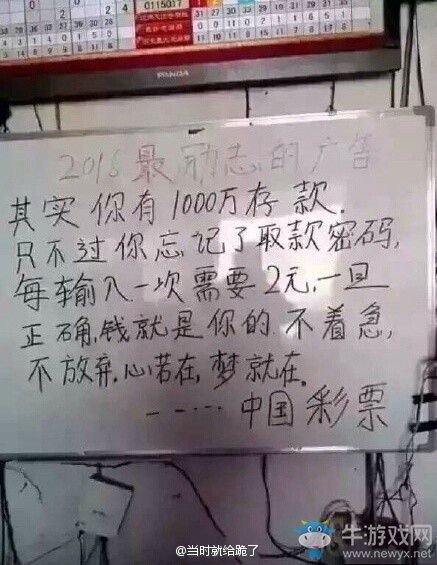 0115017
PANDA
2016最励志的广告
其实你有1000万存款.
只不过你忘记了取款密码,
每输入一次需要2元,一旦
正确,钱就是你的.不着急,
不放弃.心若在,梦就在.
-----中国彩票
@当时就给跪了
牛游戏网
www.newyx.net